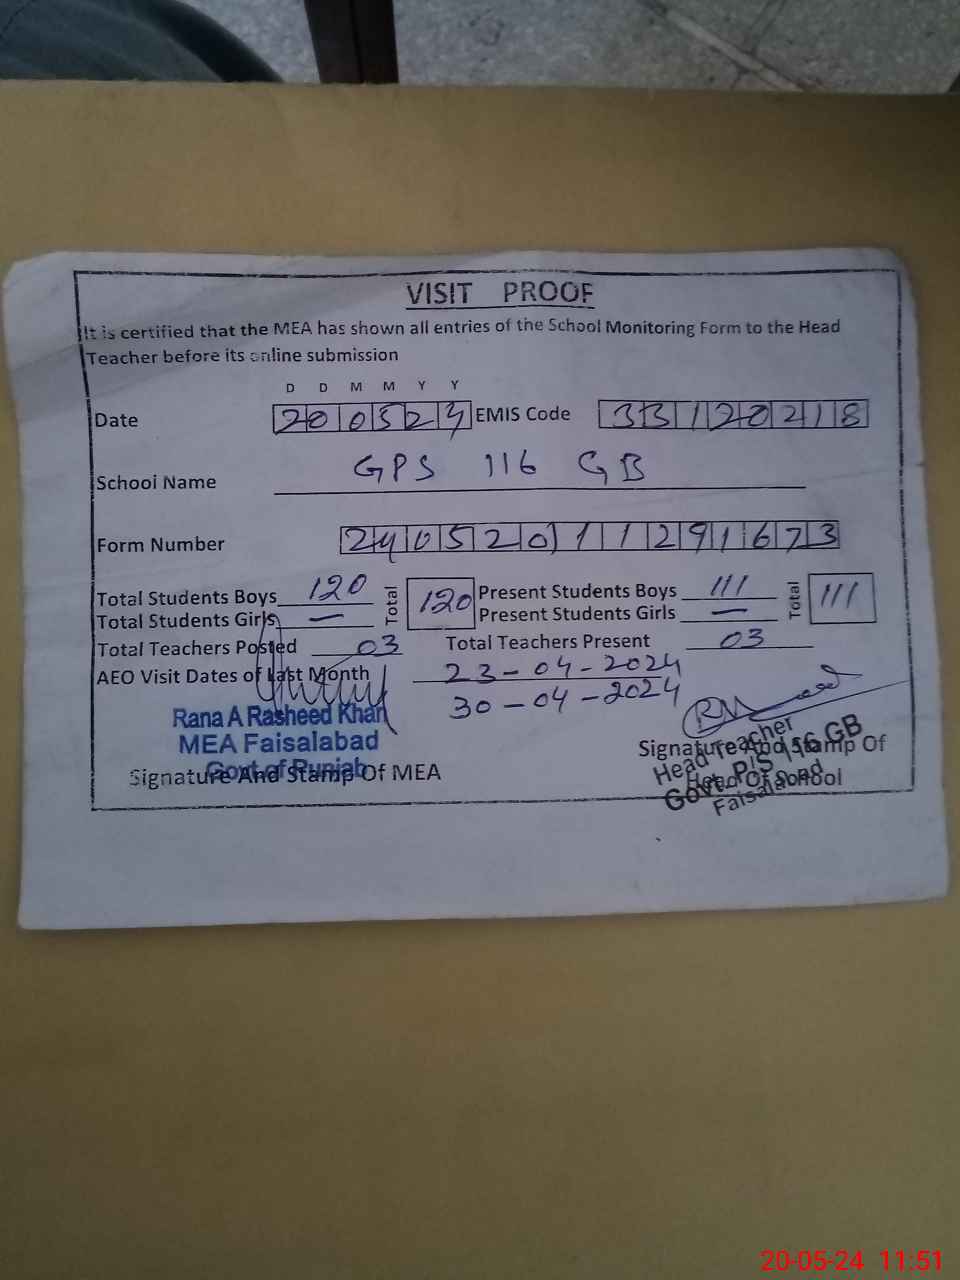 VISIT PROOF
It is certified that the MEA has shown all entries of the School Monitoring Form to the Head
Teacher before its online submission
D D M M Y Y
Date 200524 EMIS Code 33120218
School Name GPS 116 GB
Form Number 240520111291673
Total Students Boys 120 Total 120 Present Students Boys 111 Total 111
Total Students Girls — Present Students Girls —
Total Teachers Posted 03 Total Teachers Present 03
AEO Visit Dates of Last Month 23-04-2024
30-04-2024
Rana A Rasheed Khan
MEA Faisalabad
Govt of Punjab
Signature And Stamp Of MEA
Signature And Stamp Of
Head Of School
Head Teacher
Govt. P/S GB
Faisalabad
20-05-24 11:51